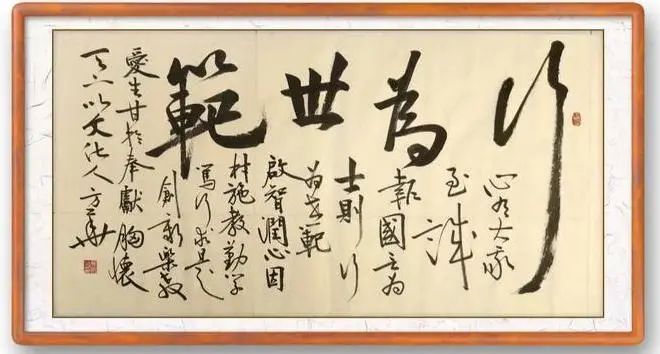 行為世範
心有大我
至誠
報國言為
士則行
为世範
啟智潤心因
材施教勤学
篤行求是
創新樂教
愛生甘於奉獻胸懷
天下以文化人方華